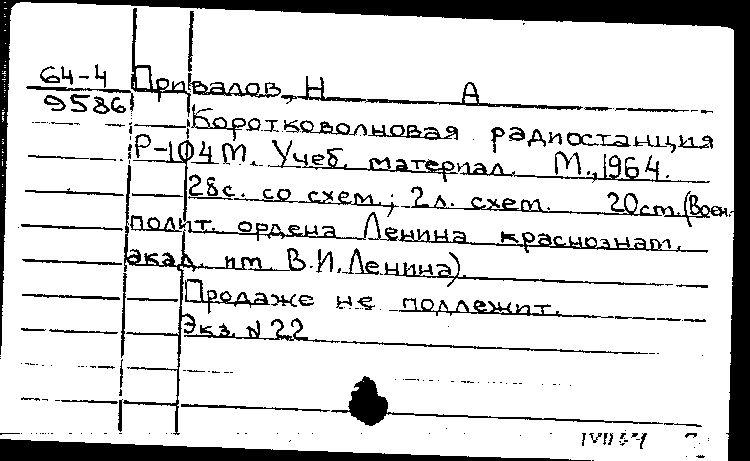 64-4 Привалов, Н А
9586
Коротковолновая радиостанция
Р-104М. Учеб. материал. М., 1964.
28с. со схем.; 2л. схем. 20ст. (Воен.
полит. ордена Ленина краснознам.
акад. им. В.И. Ленина).
Продаже не подлежит.
Экз. N 22